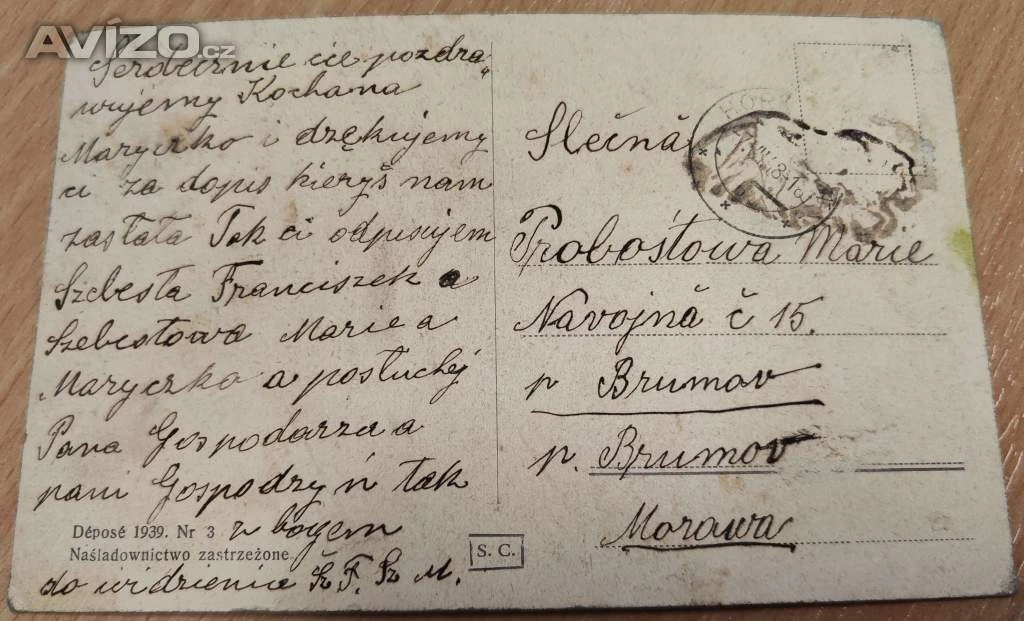 AVÍZO.cz
Serdecznie cie pozdra,
wujemy Kochana
Maryczko i dzękujemy
ci za dopis kieryś nam
zasłała Tak ci odpisujem
Szebesta Franciszek a
Szebestowa Marie a
Maryczko a posłuchej
Pana Gospodarza a
pani Gospodzyń tak
z bogem
do widzenia Sz F. Sz M.
Déposé 1939. Nr 3
Naśladownictwo zastrzeżone
S. C.
Slečná
Probośtowa Marie
Návojná č 15.
p Brumov
p. Brumov
Morawa